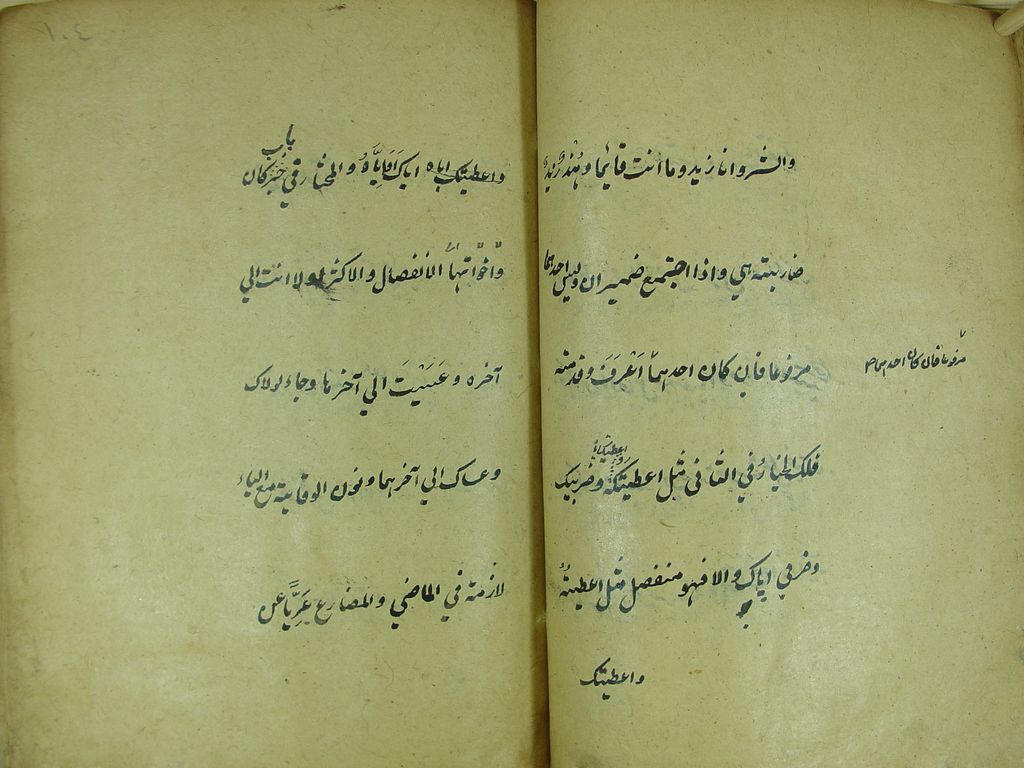 والشر وانا زيد وما انت قائما وهند زيد
ضاربته هي واذا اجتمع ضميران وليس احدهما
مرفوعا فان كان احدهما اعرف وقدمته
مرفوعا فان كان احدهما صح
فلك الخيار في الثاني مثل اعطيتكه وضربيك
واعطيتك اياه
وضربي اياك والا فهو منفصل مثل اعطيته
واعطيتك
١٠٤
باب
واعطيتك اياه اياك او اياه والمختار في خبر كان
واخواتها الانفصال والاكثر لولا انت الي
آخره وعسيت الي آخرها وجاء لولاك
وعساك الي آخرهما ونون الوقاية مع الياء
لازمة في الماضي والمضارع عريا عن